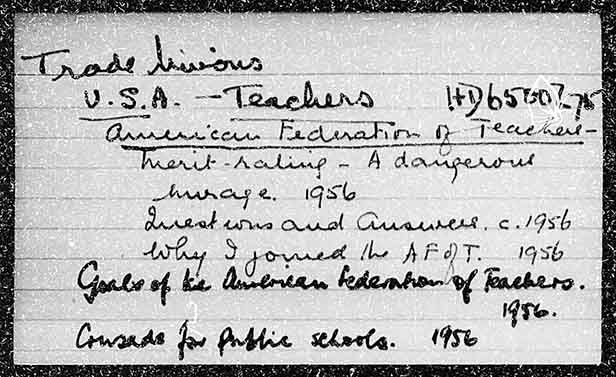 Trade Unions
U.S.A. - Teachers HD6500Z75
American Federation of Teachers-
Merit-rating - A dangerous
mirage. 1956
Questions and Answers. c.1956
Why I joined the A F of T. 1956
Goals of the American Federation of Teachers.
1956.
Crusade for public schools. 1956